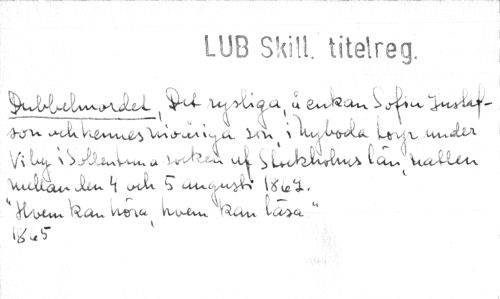 LUB Skill. titelreg.
Dubbelmordet, Det rysliga, å enkan Sofia Gustaf-
son och hennes nioåriga son, i Nyboda torp under
Viby i Sollentuna socken uf Stockholms län, natten
mellan den 4 och 5 augusti 1862.
"Hvem kan höra, hvem kan läsa"
1865